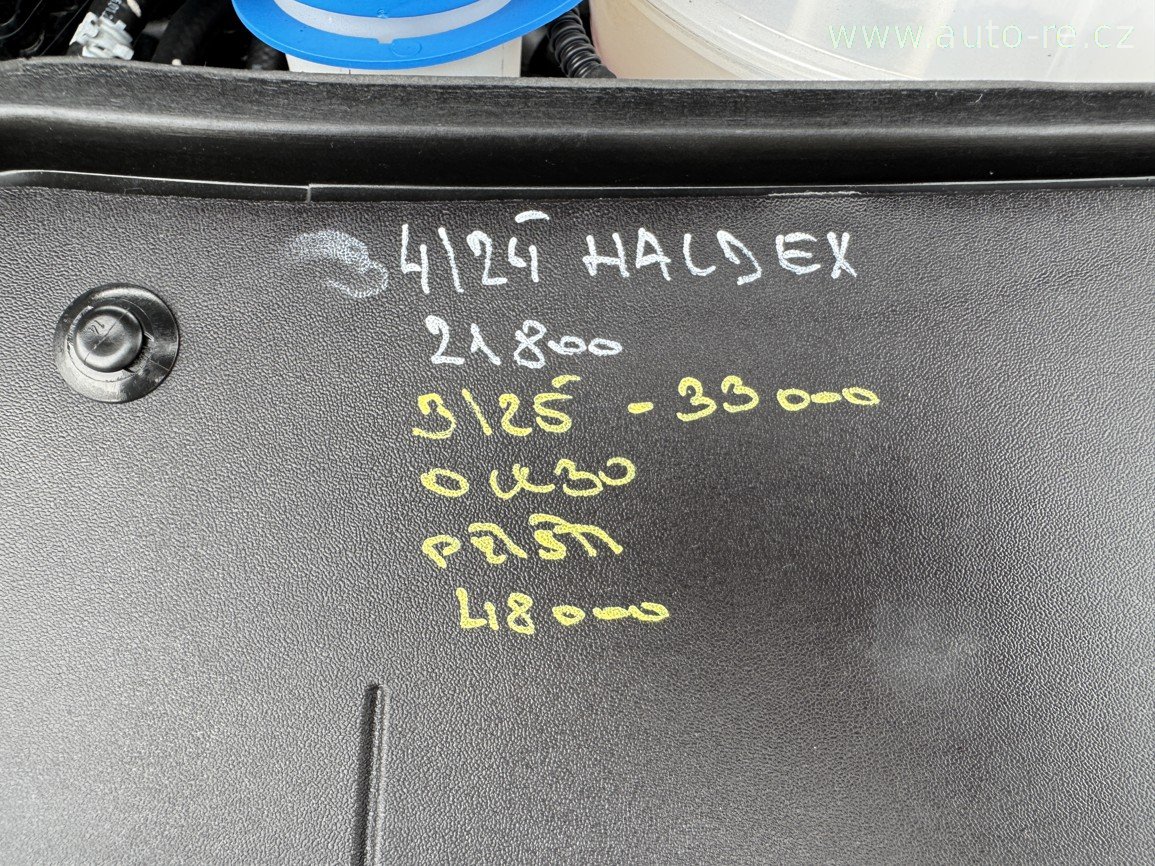 www.auto-re.cz
4/24 HALDEX
21 800
3/25 - 33 000
0W30
PŘÍŠTÍ
48 000